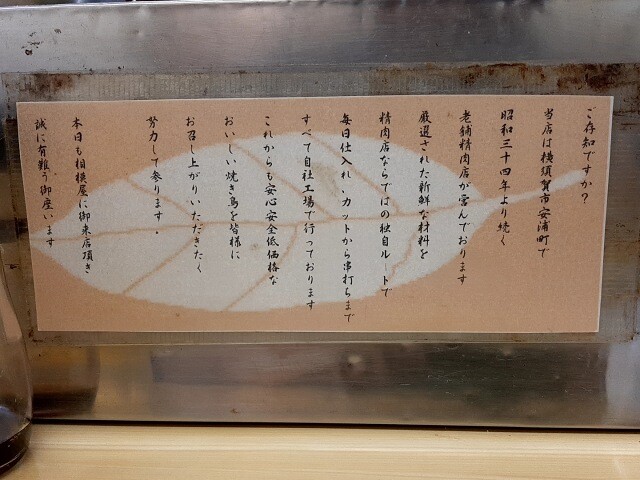 ご存知ですか?
当店は横須賀市安浦町で
昭和三十四年より続く
老舗精肉店が営んでおります
厳選された新鮮な材料を
精肉店ならではの独自ルートで
毎日仕入れ、カットから串打ちまで
すべて自社工場で行っております
これからも安心安全低価格な
おいしい焼き鳥を皆様に
お召し上がりいただきたく
努力して参ります。
本日も相模屋に御来店頂き
誠に有難う御座います